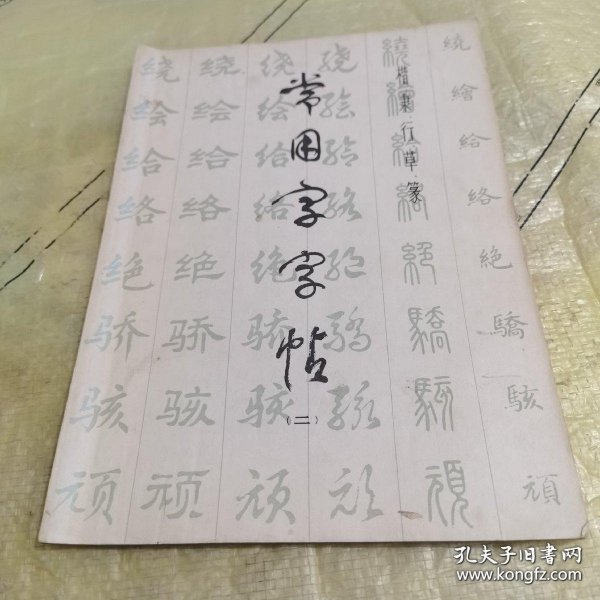 常用字字帖
（二）
楷隶行草篆
繞繪給絡絶驕駭頑
繞繪給絡絶驕駭頑
绕绘给络绝骄骇顽
绕绘给络绝骄骇顽
绕绘给络绝骄骇顽
绕绘给络绝骄骇顽
孔夫子旧书网
www.kongfz.com